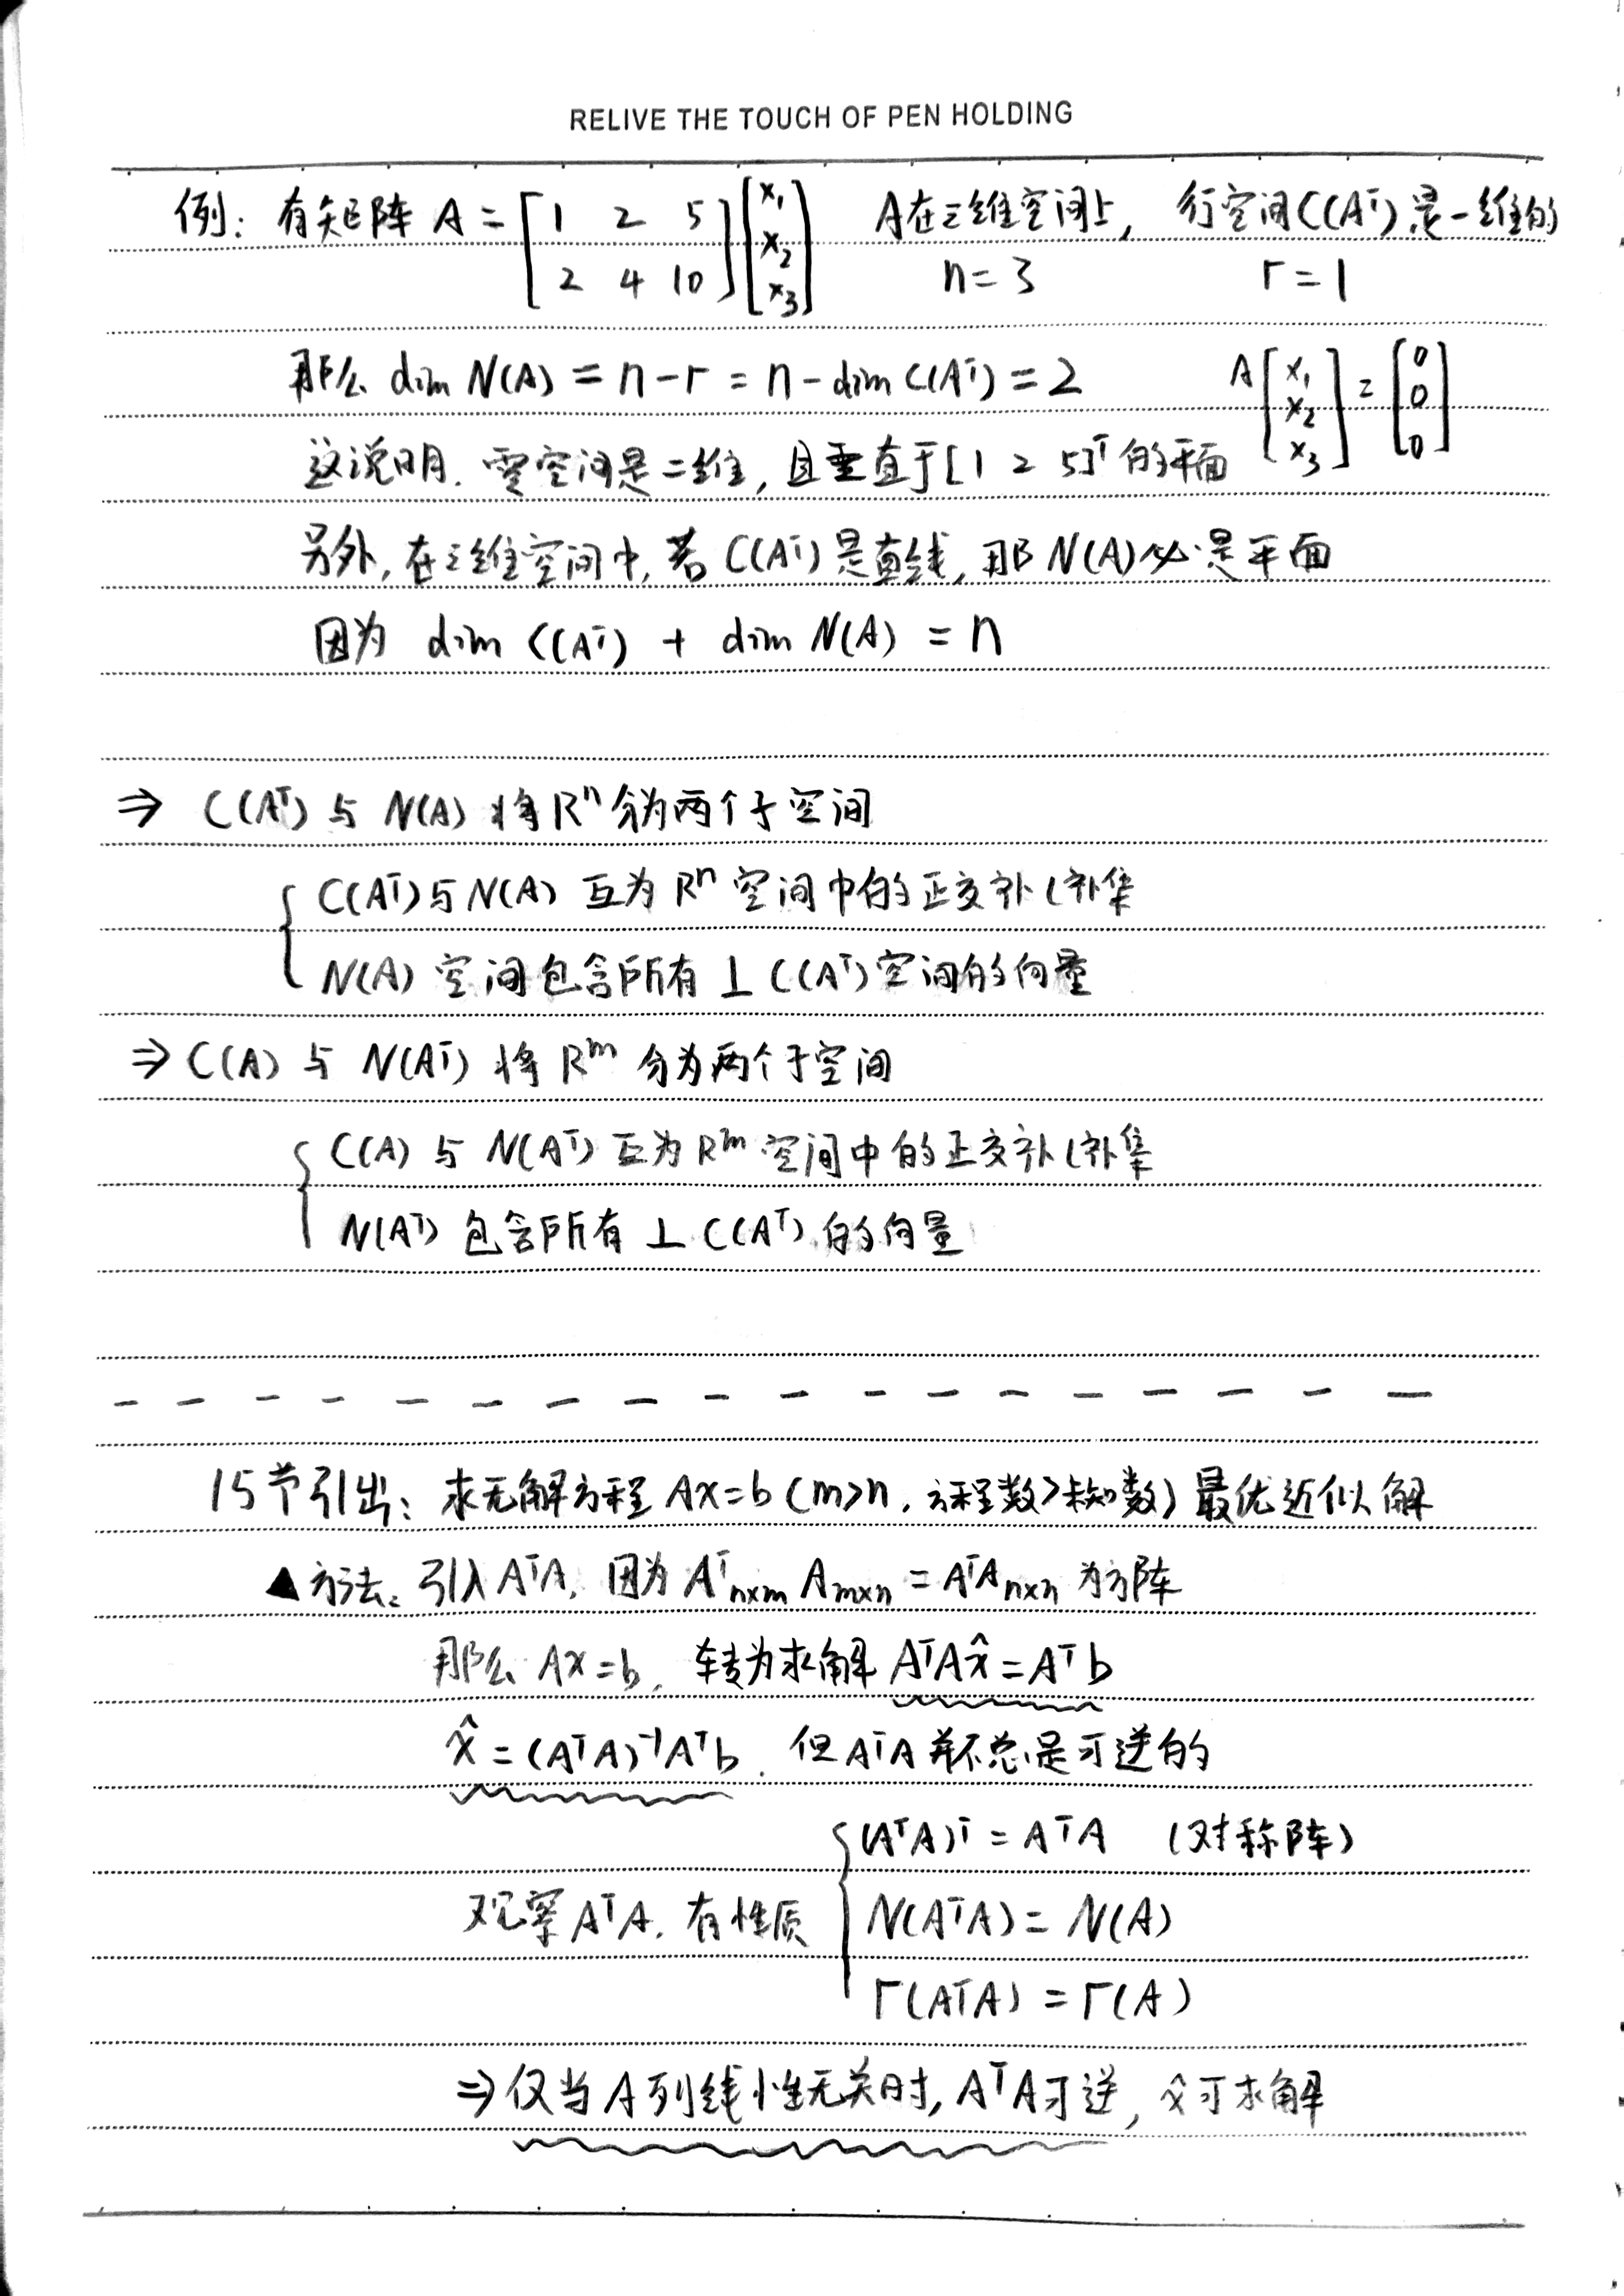 RELIVE THE TOUCH OF PEN HOLDING
例: 有矩阵 A = [1 2 5; 2 4 10] [x₁; x₂; x₃] A在三维空间上, 行空间C(Aᵀ)是一维的
n = 3 r = 1
那么 dim N(A) = n - r = n - dim C(Aᵀ) = 2 A [x₁; x₂; x₃] = [0; 0; 0]
这说明. 零空间是二维, 且垂直于[1 2 5]ᵀ的平面
另外, 在三维空间中, 若 C(Aᵀ) 是直线, 那 N(A) 必是平面
因为 dim C(Aᵀ) + dim N(A) = n
⇒ C(Aᵀ) 与 N(A) 将 Rⁿ 分为两个子空间
C(Aᵀ) 与 N(A) 互为 Rⁿ 空间中的正交补(补集
N(A) 空间包含所有 ⊥ C(Aᵀ) 空间的向量
⇒ C(A) 与 N(Aᵀ) 将 Rᵐ 分为两个子空间
C(A) 与 N(Aᵀ) 互为 Rᵐ 空间中的正交补(补集
N(Aᵀ) 包含所有 ⊥ C(Aᵀ) 的向量
15节引出: 求无解方程 Ax=b (m>n, 方程数>未知数) 最优近似解
▲ 方法: 引入 AᵀA, 因为 Aᵀn×m Am×n = AᵀAn×n 为方阵
那么 Ax=b, 转为求解 AᵀAx̂ = Aᵀb
x̂ = (AᵀA)⁻¹Aᵀb. 但 AᵀA 并不总是可逆的
(AᵀA)ᵀ = AᵀA (对称阵)
观察 AᵀA. 有性质 N(AᵀA) = N(A)
r(AᵀA) = r(A)
⇒ 仅当 A 列线性无关时, AᵀA 可逆, x̂ 可求解